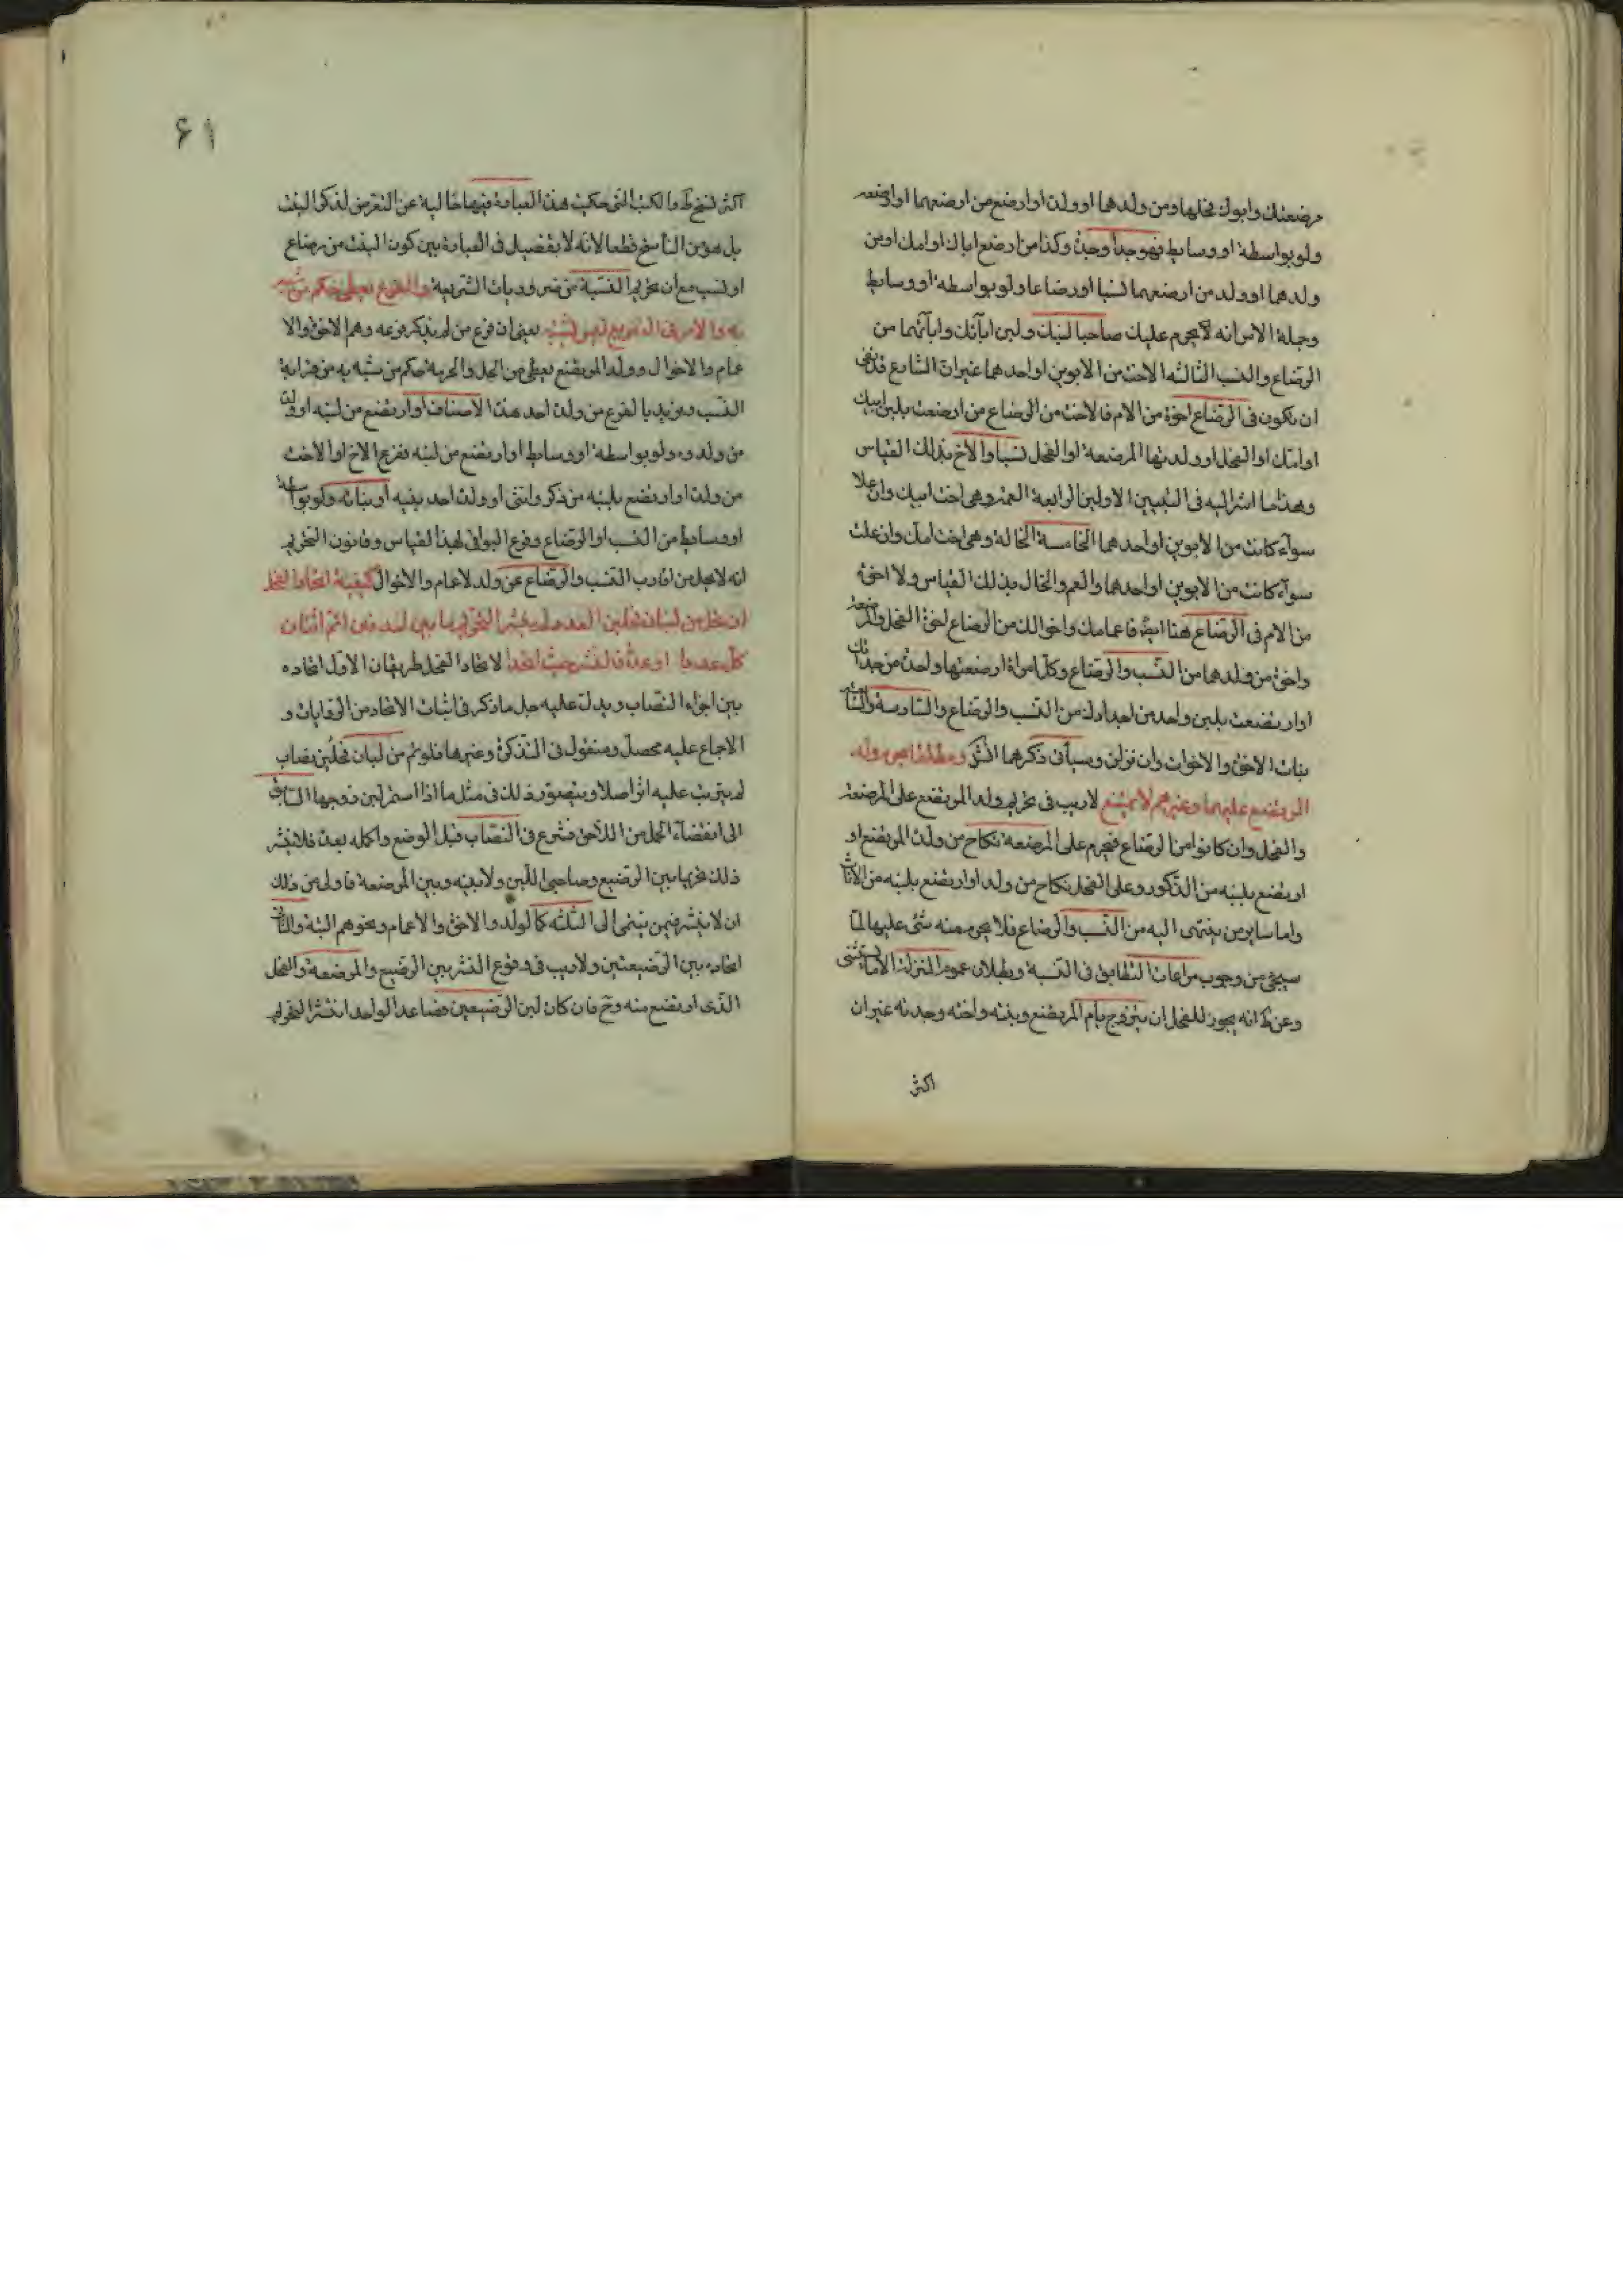 مرضعتك وابوك فحلها ومن ولدهما اوولدا اوارضع من ارضعهما اوارضعه
ولو بواسطة او وسايط فهو جد او جدة وكذا من ارضع اباك او امك او من
ولدهما او ولد من ارضعهما نسبا او رضاعا ولو بواسطه او وسايط
وجملة الامر انه يحرم عليك صاحبا لبنك ولبن ابآئك وابآئهما من
الرضاع والنسب الثالثه الاخت من الابوين او احدهما غير ان الشايع قد نفى
ان يكون فى الرضاع اخوة من الام فالاخت من الرضاع من ارضعت بلبن ابيك
او امك او الفحل او ولدتها المرضعة او الفحل نسبا والاخ بذلك القياس
وهذا ما اشر اليه فى التنبيهين الاولين الرابعة العمة وهى اخت ابيك وان علا
سوآء كانت من الابوين او احدهما الخامسة الخالة وهى اخت امك وان علت
سوآء كانت من الابوين او احدهما والعم والخال بذلك القياس ولا اخوة
من الام فى الرضاع هنا ايضا فاعمامك واخوالك من الرضاع اخوة الفحل والمرضعة
واخوة من ولدهما من النسب والرضاع وكل امرأة ارضعتها واحدة من جداتك
او ارتضعت بلبن واحد من اجدادك من النسب والرضاع والسادسة والسابعة
بنات الاخوة والاخوات وان نزلن وسيأتى ذكرهما
المرتضع عليهما وغيرهم لا يمتنع لاريب فى تحريم ولد المرتضع على المرضعة
والفحل وان كانوا من الرضاع فيحرم على المرضعة نكاح من ولده المرتضع او
ارتضع بلبنه من الذكور وعلى الفحل نكاح من ولد او ارتضع بلبنه من الاناث
واما ساير من ينتمى اليه من النسب والرضاع فلا يحرم منه شئ عليها لما
سيجئ من وجوب مراعات التطابق فى النسبة وبطلان عموم المنزلة الا ما استثنى
وعن ط انه يجوز للفحل ان يتزوج بام المرتضع وبنته واخته وجدته غير ان
اكثر
۶۱
اكثر نسخ ط والكتب التى حكيت هذه العبارة فيها خالية عن التعرض لذكر البنت
بل هو من الناسخ قطعا لانه لا تفصيل فى العبارة بين كون البنت من رضاع
او نسب مع ان تحريم النسبية من ضروريات الشريعة والفرع يعطى حكم من شبه
به والامر فى التفريع ليس يعنى ان فرع من لم يذكر فرعه وهم الاخوة والا
عمام والاخوال وولد المرتضع يعطى من الحل والحرمة حكم من شبه به من قرابة
النسب ونريد بالفرع من ولده احد هذه الاصناف او ارتضع من لبنه او ولده
من ولدوه ولو بواسطه او وسايط او ارتضع من لبنه ففرع الاخ او الاخت
من ولده او ارتضع بلبنه من ذكر وانثى او ولده احد بنيه او بناته ولو بواسطة
او وسايط من النسب او الرضاع وفرع البواقى بهذا القياس وقانون التحريم
انه لا يحل من اقارب النسب والرضاع عن ولد لاعمام والاخوال كيفية اتحاد الفحل
ان كل من لبان فحلين العدد لم ينشر التحريم
كل عددا او عدة فالنشر حيث اتحدا لاتحاد الفحل طريقان الاول اتحاده
بين اجزاء النصاب ويدل عليه جل ما ذكر فى اثبات الاتحاد من الروايات و
الاجماع عليه محصل ومنقول فى التذكرة وغيرها فلو تم من لبان فحلين نصاب
لم يترتب عليه اثر اصلا ويتصور ذلك فى مثل ما اذا استمر لبن زوجها السابق
الى انقضاء الحمل من اللاحق فشرع فى النصاب قبل الوضع واكمله بعده فلا ينشر
ذلك تحريما بين الرضيع وصاحبى اللبن ولا بينه وبين المرضعة فاولى من ذلك
ان لا ينشر فيمن ينتمى الى الثلثه كالولد والاخوة والاعمام ونحوهم البتة والثانى
اتحاده بين الرضيعتين ولاريب فى وقوع النشر بين الرضيع والمرضعة والفحل
الذى ارتضع منه وح فان كان لبن الرضيعين فصاعدا لواحد انتشر التحريم